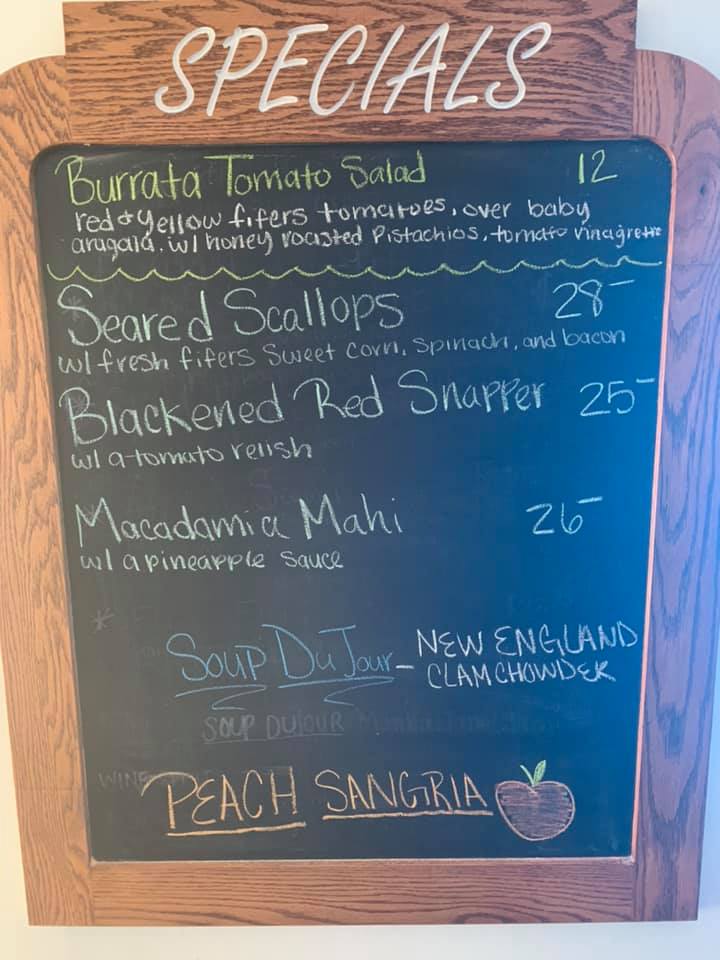 SPECIALS
Burrata Tomato Salad 12
red + yellow fifers tomatoes, over baby
arugala. w/ honey roasted Pistachios, tomato vinagrette
Seared Scallops 28-
w/ fresh fifers Sweet corn, spinach, and bacon
Blackened Red Snapper 25-
w/ a tomato relish
Macadamia Mahi 26-
w/ a pineapple sauce
*
Soup Du Jour - NEW ENGLAND
CLAM CHOWDER
SOUP DUJOUR
WINE
PEACH SANGRIA